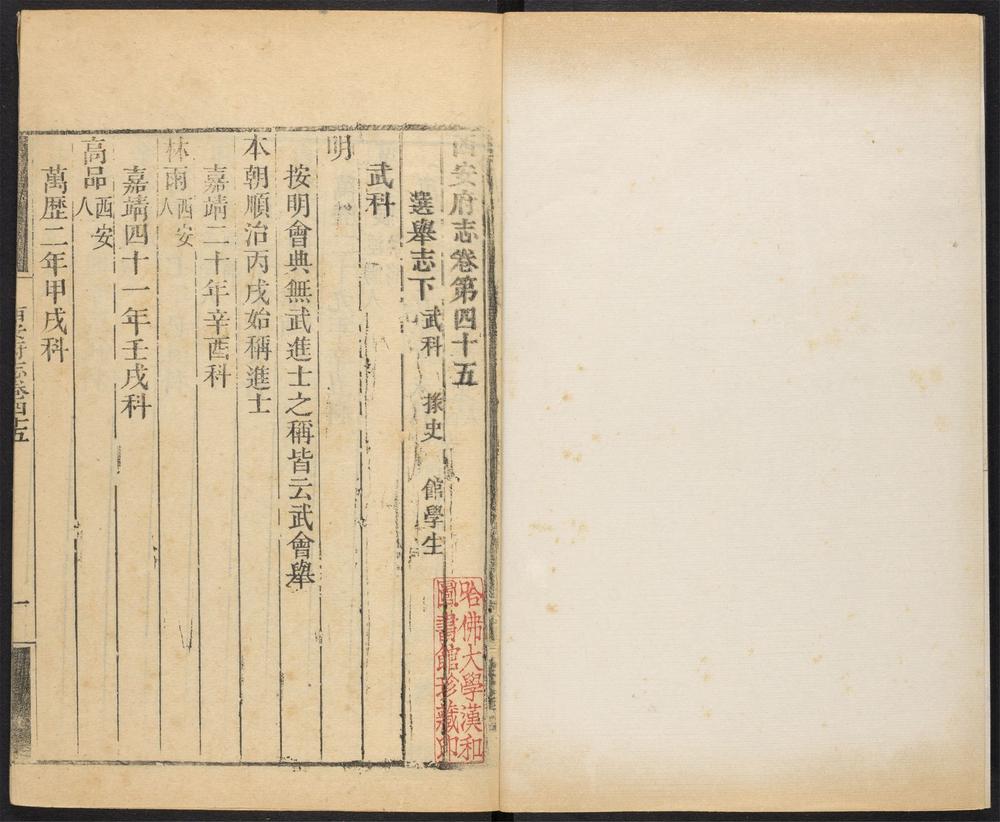 西安府志卷第四十五
選舉志下 武科 掾史 館學生
武科
明
按明會典無武進士之稱皆云武會舉
本朝順治丙戌始稱進士
嘉靖二十年辛酉科
林雨 西安人
嘉靖四十一年壬戌科
高品 西安人
萬歷二年甲戌科
西安府志卷四十五
一
哈佛大學漢和
圖書館珍藏印